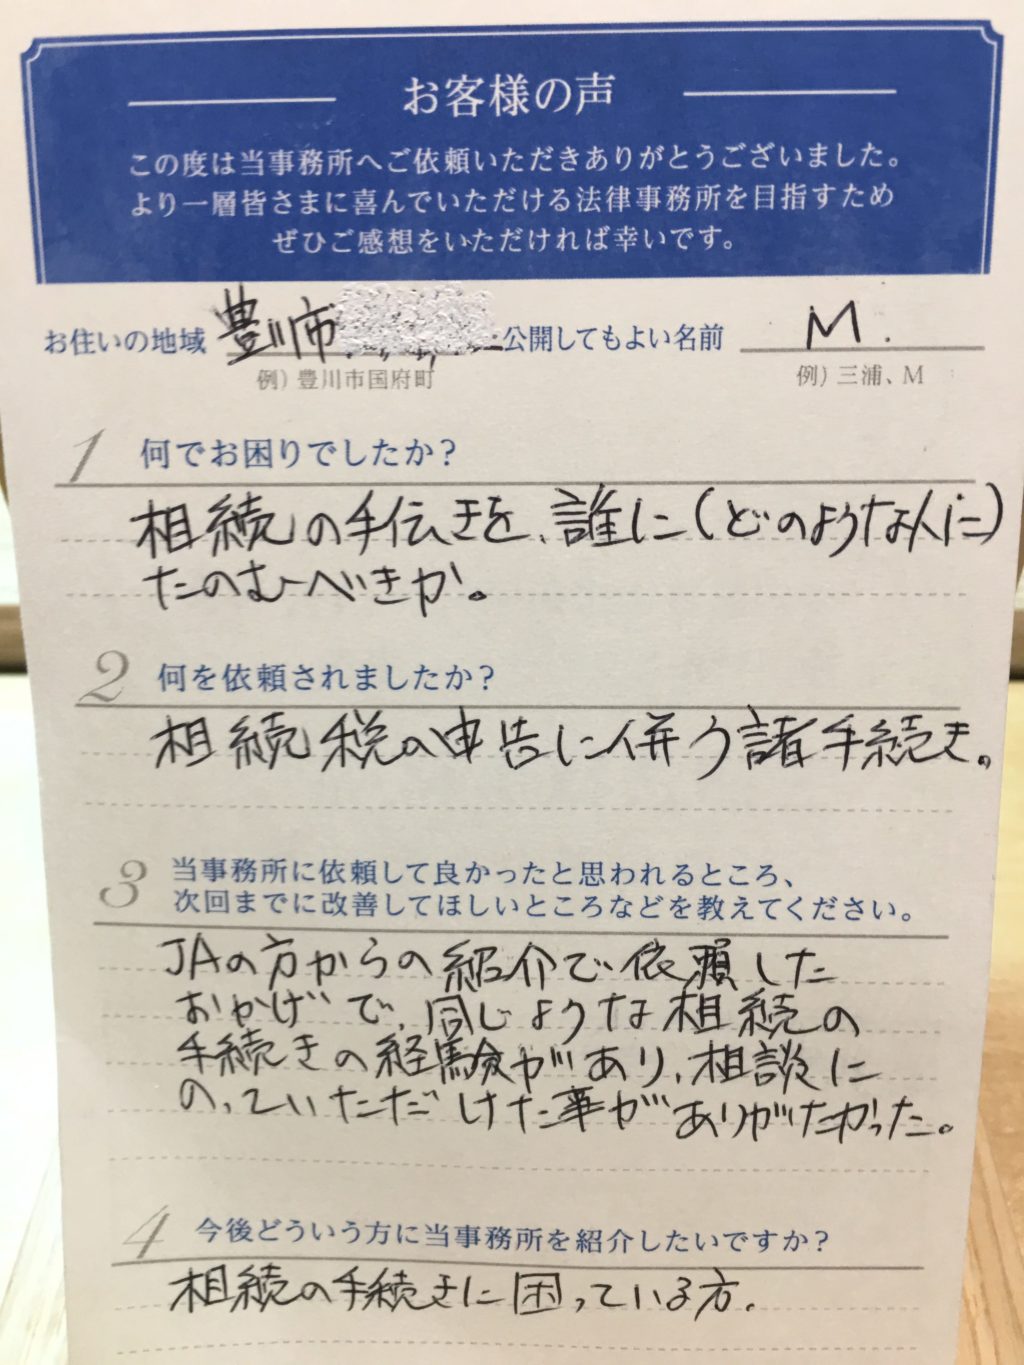 お客様の声
この度は当事務所へご依頼いただきありがとうございました。
より一層皆さまに喜んでいただける法律事務所を目指すため
ぜひご感想をいただければ幸いです。
お住いの地域 豊川市 公開してもよい名前 M.
例）豊川市国府町 例）三浦、M
1 何でお困りでしたか？
相続の手伝きを、誰に(どのような人に)
たのむべきか。
2 何を依頼されましたか？
相続税の申告に併う諸手続き。
3 当事務所に依頼して良かったと思われるところ、
次回までに改善してほしいところなどを教えてください。
JAの方からの紹介で依頼した
おかげで、同じような相続の
手続きの経験があり、相談に
のっていただけた事がありがたかった。
4 今後どういう方に当事務所を紹介したいですか？
相続の手続きに困っている方.